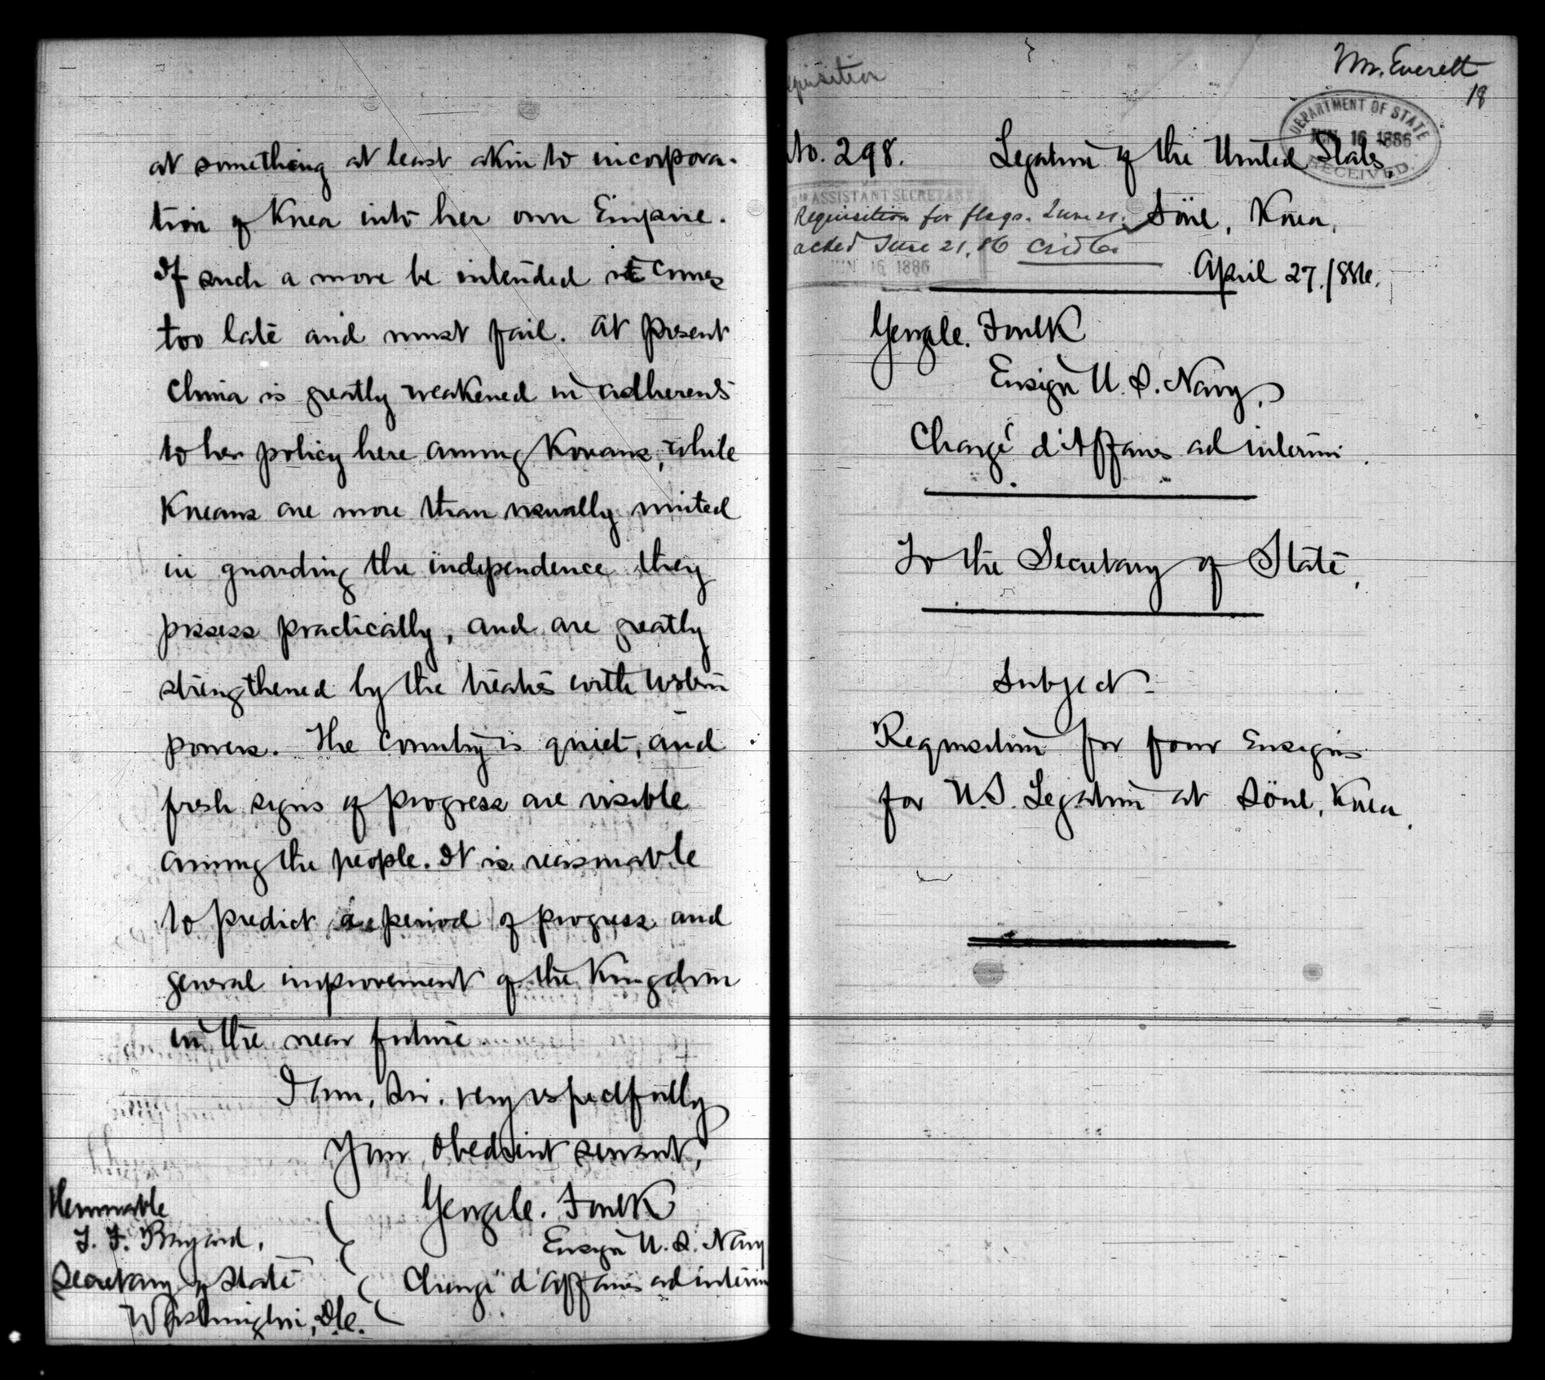 at something at least akin to incorpora-
tion of Korea into her own Empire.
If such a move be intended it comes
too late and must fail. At present
China is greatly weakened in adherents
to her policy here among Koreans, while
Koreans are more than usually united
in guarding the independence they
possess practically, and are greatly
strengthened by the treaties with Western
powers. The Country is quiet, and
fresh signs of progress are visible
among the people. It is reasonable
to predict a period of progress and
general improvement of the Kingdom
in the near future
I am, Sir, very respectfully
Your obedient servant,
George C. Foulk
Ensign U. S. Navy
Chargé d'Affaires ad interim
Honorable
T. F. Bayard,
Secretary of State
Washington, D.C.
Mr. Everett
18
DEPARTMENT OF STATE
JUN 16 1886
RECEIVED
No. 298.
Legation of the United States,
Söul, Korea,
April 27./886.
ASSISTANT SECRETARY
Requisition for flags. June 21.
acked June 21, 86
JUN 16 1886
George C. Foulk
Ensign U. S. Navy,
Chargé d'Affaires ad interim.
To the Secretary of State,
Subject
Requisition for four Ensigns
for U.S. Legation at Söul, Korea.